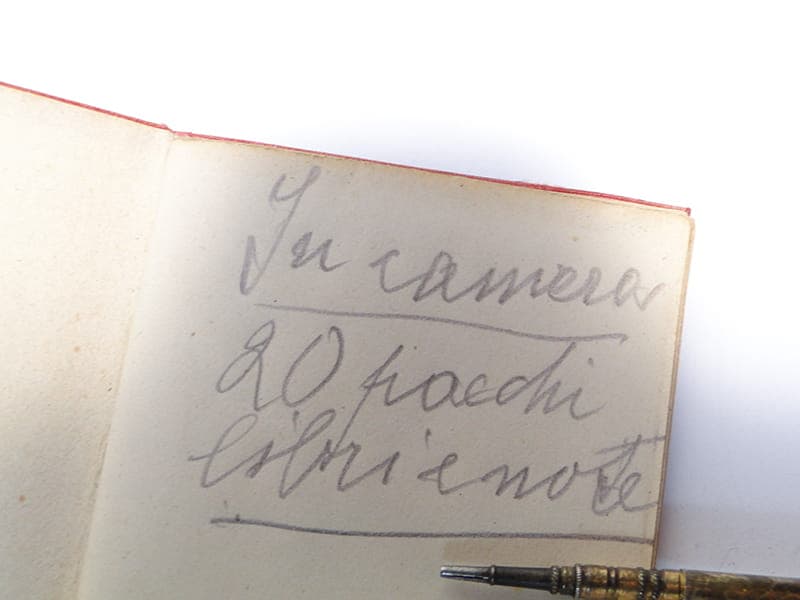 In camera
20 pacchi
libri e note